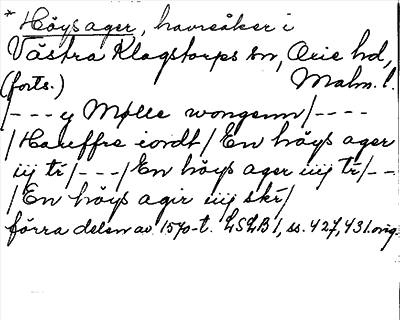 * Höysager, havreåker i
Västra Klagstorps sn, Oxie hd,
(forts.) Malm. l.
/---y Mølle wongenn/----
/Haffre iordt/En höys ager
iij tr/---/En höys ager iiij tr/--
/En höys agir iiij skr/
förra delen av 1570-t. LSLB 1, ss. 427, 431. orig.